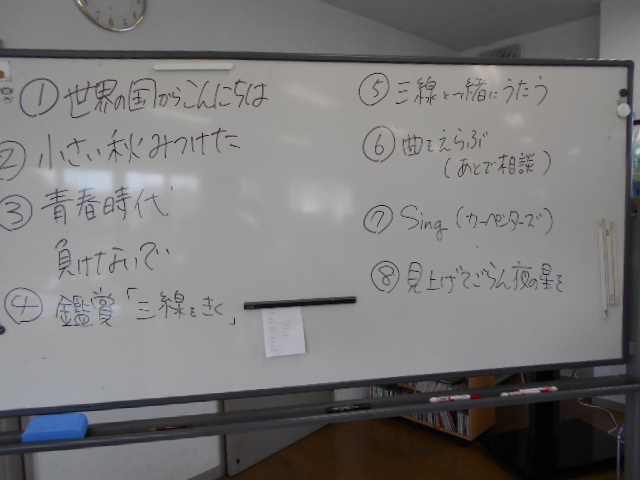 ① 世界の国からこんにちは
② 小さい秋みつけた
③ 青春時代
負けないで
④ 鑑賞「三線をきく」
⑤ 三線と一緒にうたう
⑥ 曲をえらぶ
(あとで相談)
⑦ Sing (カーペンターズ)
⑧ 見上げてごらん夜の星を